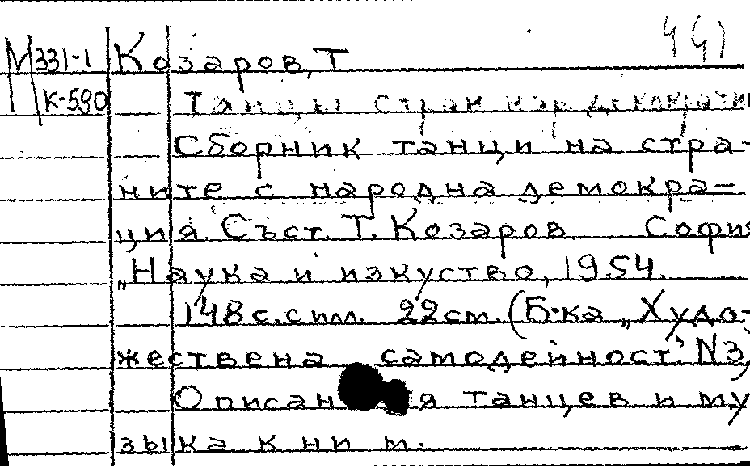 М331-1 Козаров, Т 441
К-590 Танцы стран нар демократии
Сборник танци на стра-
ните с народна демокра-
ция. Съст. Т. Козаров София
„Наука и изкуство, 1954.
148 с. с ил. 22 см. (Б-ка „Худо-
жествена самодейност" N3)
Описан я танцев и му
зыка к ним.